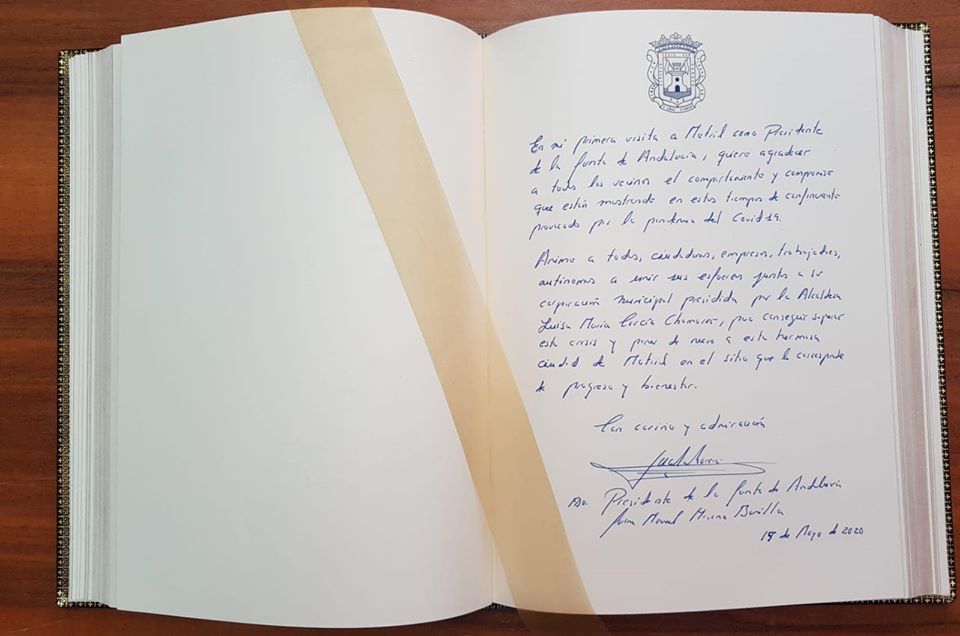 En mi primera visita a Motril como Presidente
de la Junta de Andalucía, quiero agradecer
a todos los vecinos el comportamiento y compromiso
que están mostrando en estos tiempos de confinamiento
provocado por la pandemia del Covid 19.
Animo a todos, ciudadanos, empresas, trabajadores,
autónomos a unir sus esfuerzos junto a su
corporación municipal presidida por la Alcaldesa
Luisa María García Chamorro, para conseguir superar
esta crisis y poner de nuevo a esta hermosa
ciudad de Motril en el sitio que le corresponde
de progreso y bienestar.
Con cariño y admiración
Presidente de la Junta de Andalucía
Juan Manuel Moreno Bonilla
de Mayo de 2020